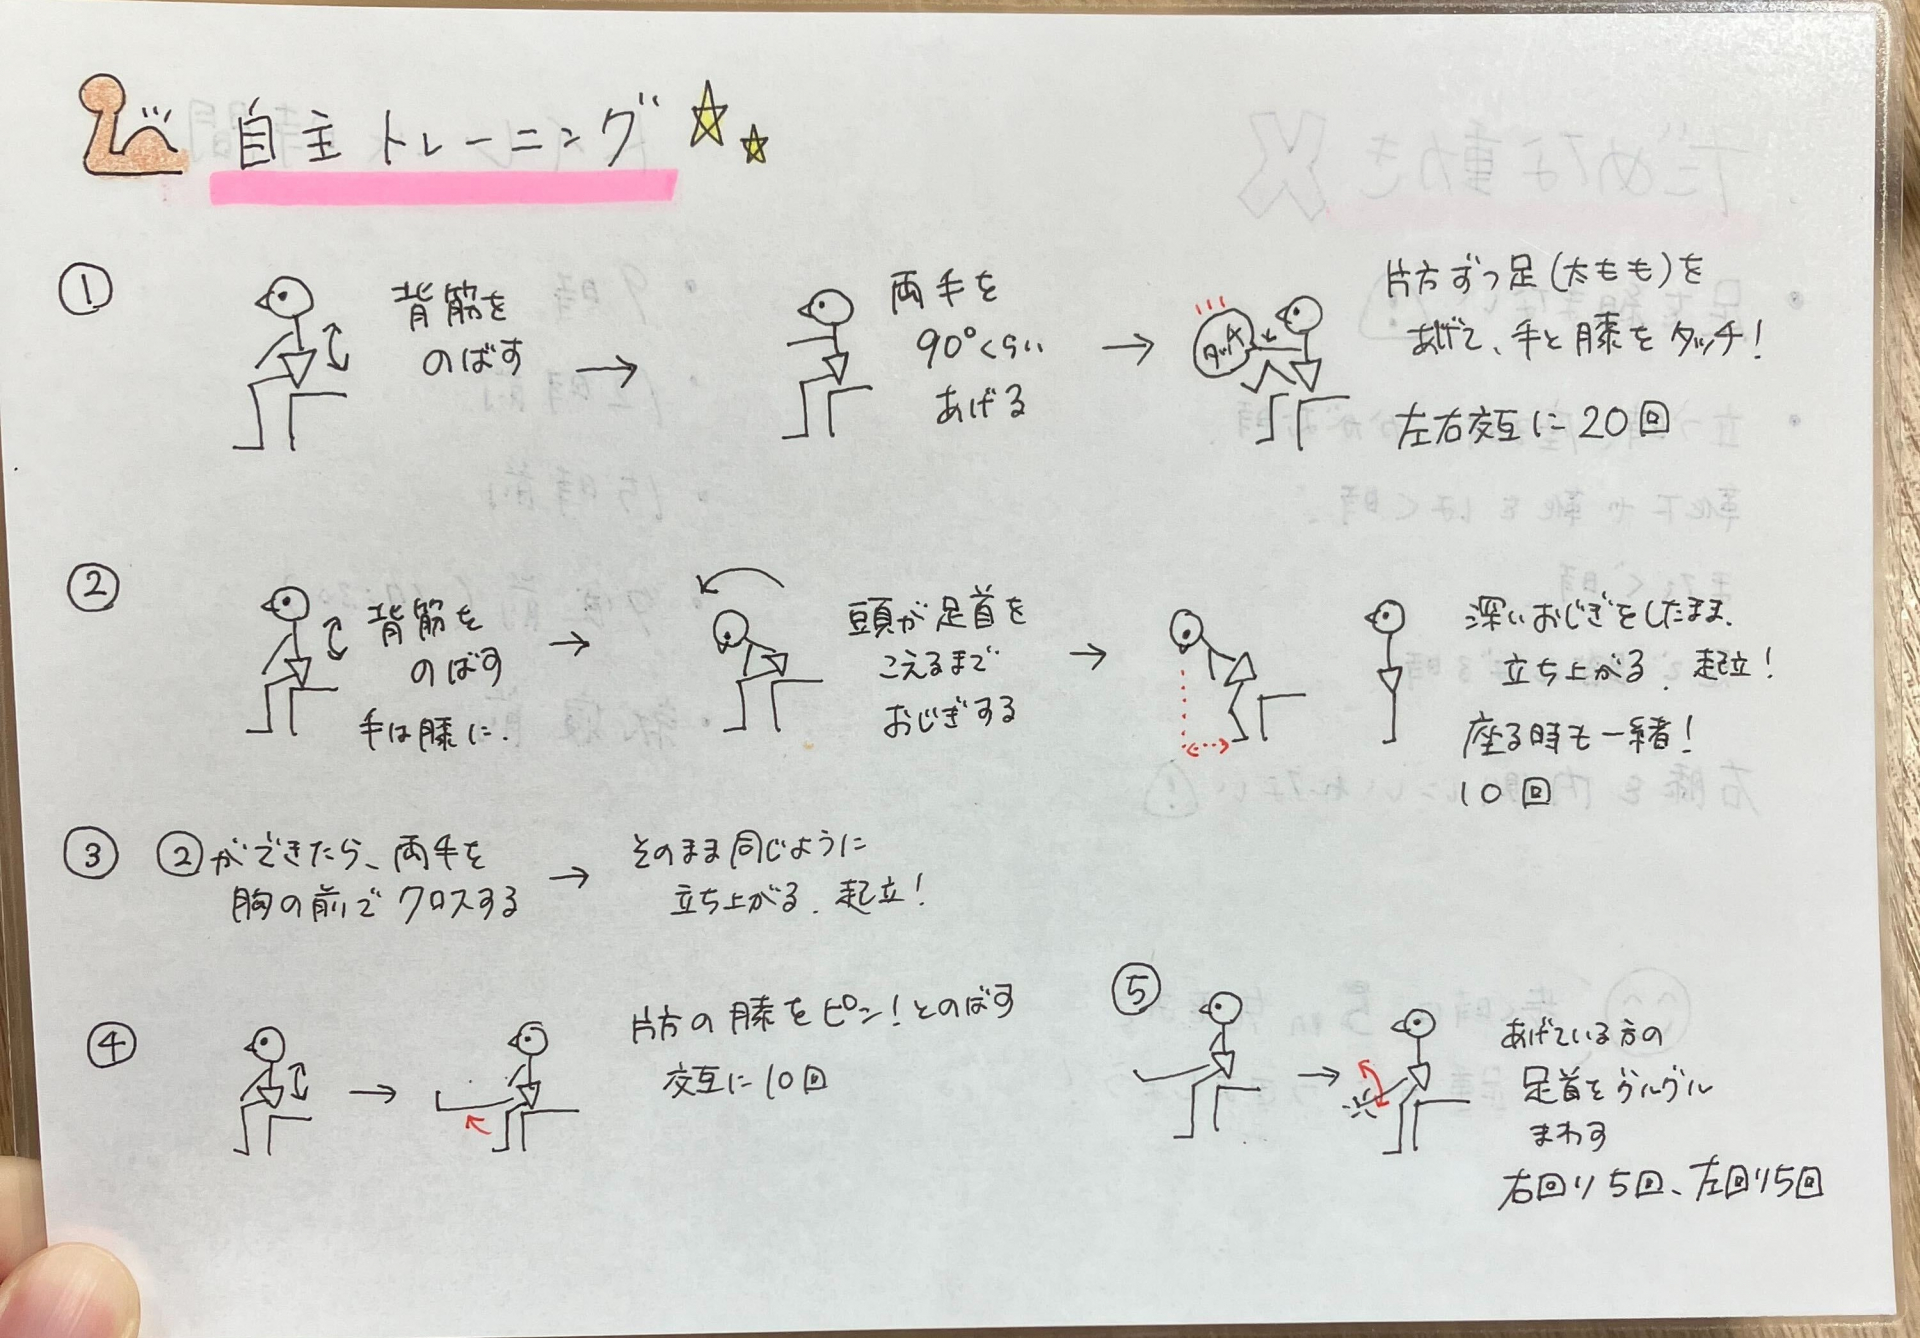 自主トレーニング
①
背筋を
のばす
両手を
90°くらい
あげる
タッチ
片方ずつ足(太もも)を
あげて、手と膝をタッチ!
左右交互に20回
②
背筋を
のばす
手は膝に.
頭が足首を
こえるまで
おじぎする
深いおじぎをしたまま、
立ち上がる、起立!
座る時も一緒!
10回
③
②ができたら、両手を
胸の前でクロスする
そのまま同じように
立ち上がる、起立!
④
片方の膝をピン!とのばす
交互に10回
⑤
あげている方の
足首をグルグル
まわす
右回り5回、左回り5回